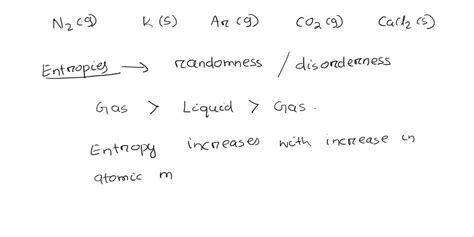 N2(g) K(s) Ar(g) CO2(g) CaCl2(s)
Entropies → randomness / disorderness
Gas > Liquid > Gas.
Entropy increases with increase in
atomic m